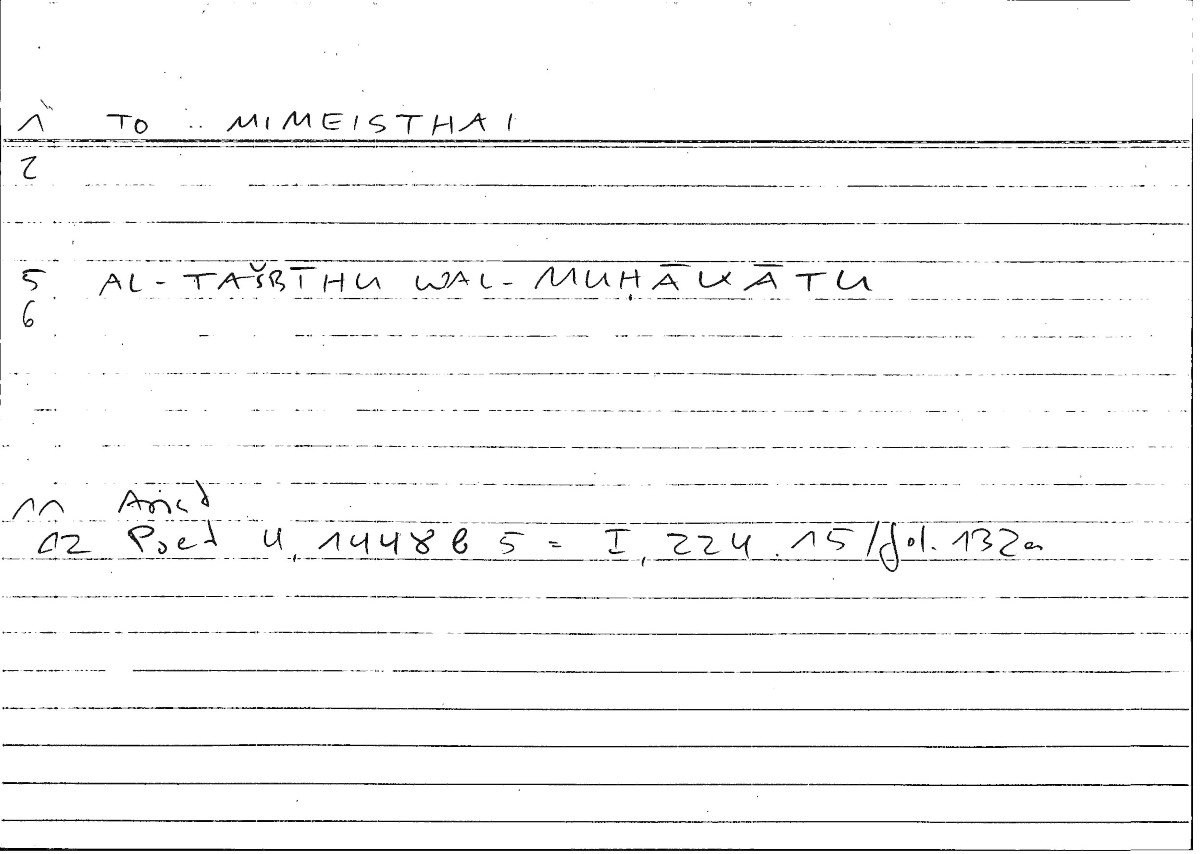 1 TO .. MIMEISTHAI
2
5 AL-TAŠBĪHU WAL-MUḤĀKĀTU
6
11 Arist
12 Poet 4, 1448 b 5 = I, 224.15/fol. 132a